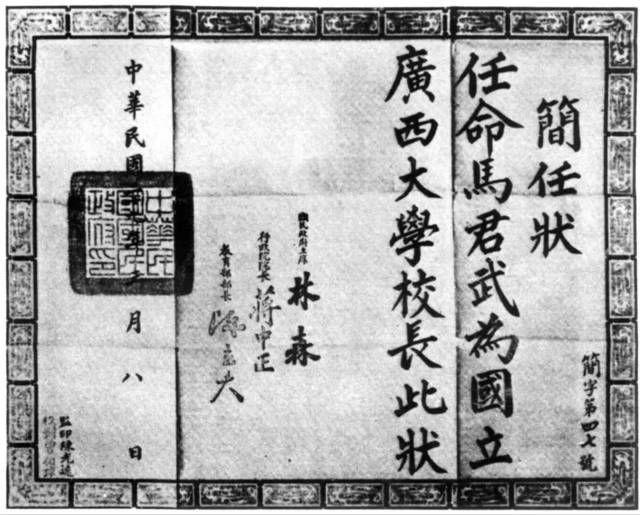 簡任狀
簡字第四七號
任命馬君武為國立
廣西大學校長此狀
國民政府主席 林森
行政院院長 蔣中正
教育部部長 陳立夫
中華民國 年 月八日
監印陳光遠